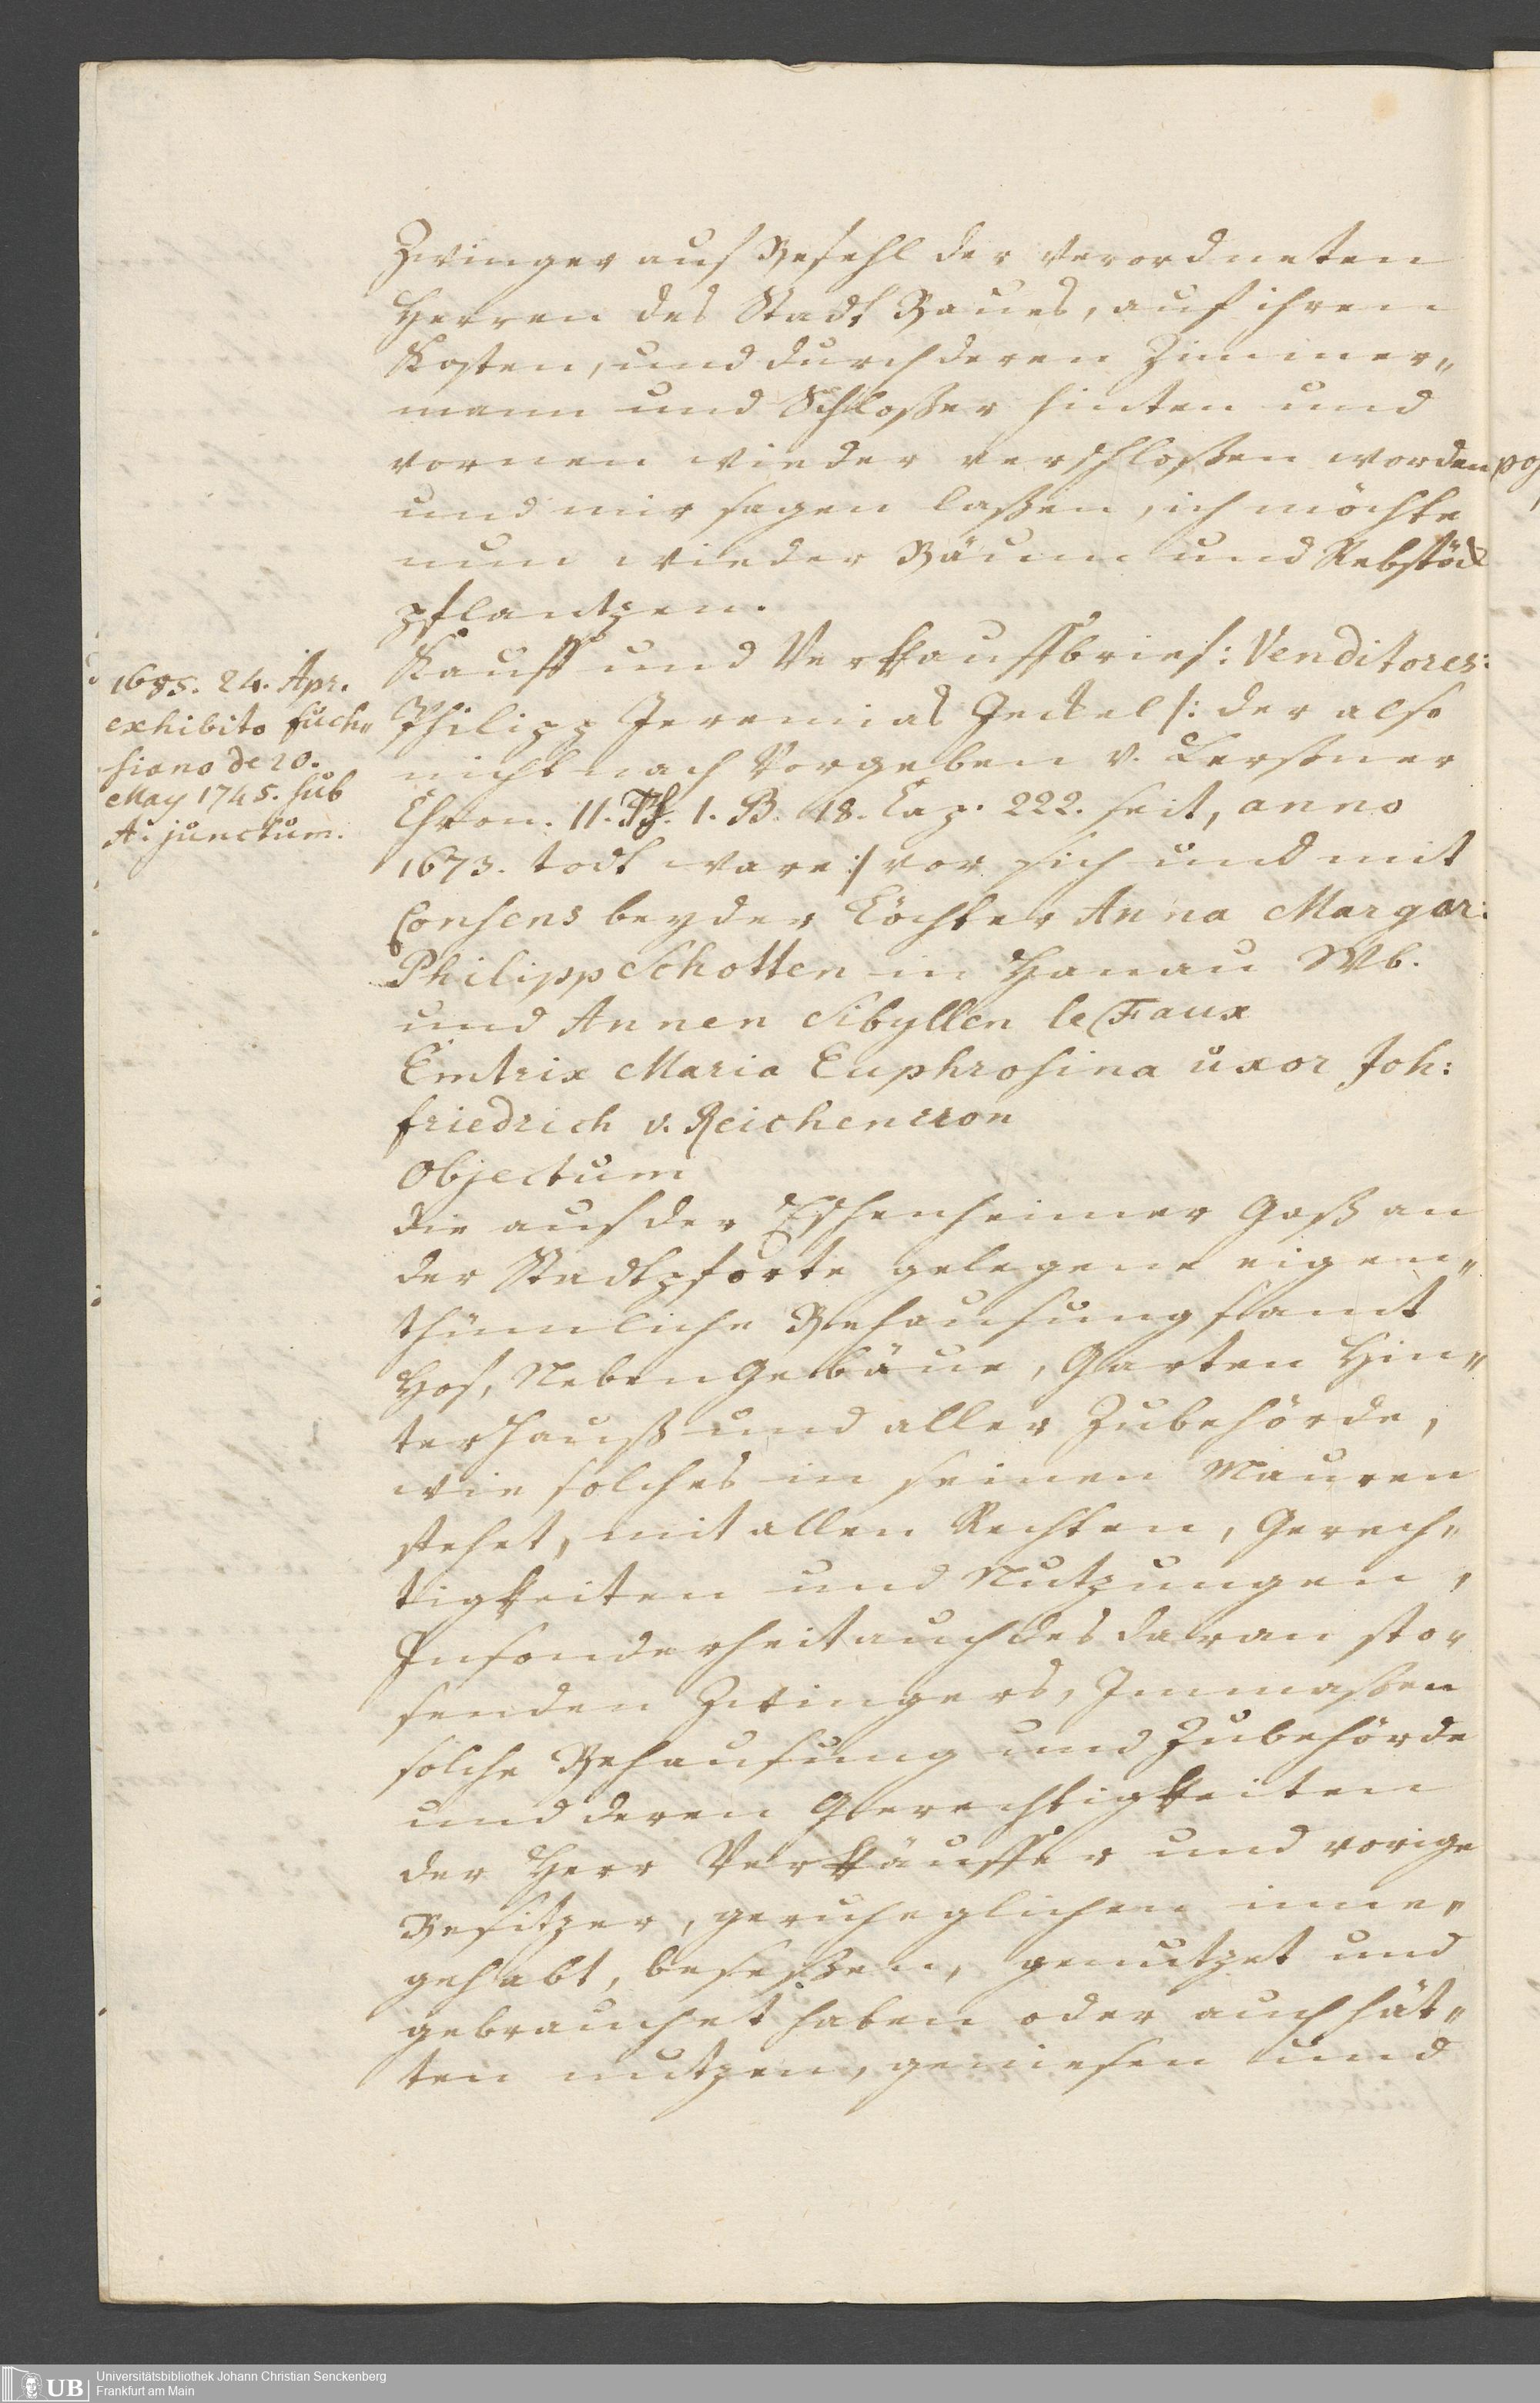 Zwinger auf Befehl der verordneten
Herren des Stadt Baues, auf ihren
Kosten, und durch deren Zimmer„
mann und Schloßer hinten und
vornen wieder verschloßen worden
und mir sagen laßen, ich möchte
nun wieder Bäum und Rebstöck
pflantzen.
1685. 24. Apr.
exhibito Fuch„
siano de 20.
May 1745. sub
A. junctum.
Kauff und Verkauffbrief: Venditores:
Philipp Jeremias Jeckel /: der also
nicht nach Vorgeben v. Lersner
Chron. 11. Th. 1. B. 18. Cap. 222. seit, anno
1673. todt ware :/ vor sich und mit
Consens beyder Töchter Anna Margar:
Philipp Schotten in Hanau Wb.
und Annen Sibyllen le Faux
Emtrix Maria Euphrosina uxor Joh:
Friedrich v. Reichencron
Objectum
die auf der Eschenheimer Gaß an
der Stadtpforte gelegene eigen„
thümliche Behausung samt
Hof, Neben Gebäue, Garten Hin„
terhauß und aller Zubehörde,
wie solches in seinen Mauren
stehet, mit allen Rechten, Gerech„
tigkeiten und Nutzungen,
Insonderheit auch des daran sto„
senden Zwingers, Immaßen
solche Behausung und Zubehörde
und deren Gerechtigkeiten
der Herr Verkäuffer und vorige
Besitzer, geruheglichen inne„
gehabt, beseßen, genutzet und
gebrauchet haben oder auch hät„
ten nutzen, geniesen und
UB
Universitätsbibliothek Johann Christian Senckenberg
Frankfurt am Main